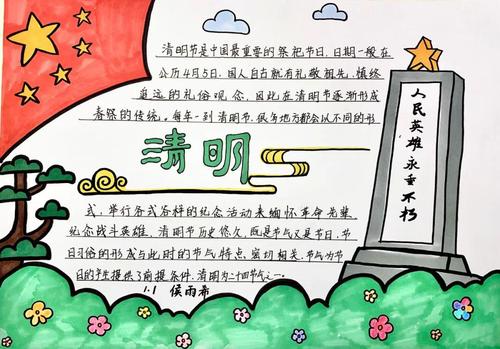 清明节是中国最重要的祭祀节日,日期一般在
公历4月5日,国人自古就有礼敬祖先,慎终
追远的礼俗观念,因此在清明节逐渐形成
春祭的传统。每年一到清明节,很多地方都会以不同的形
清明
式,举行各式各样的纪念活动来缅怀革命先辈,
纪念战斗英雄,清明节历史悠久,既是节气又是节日,节
日习俗的形成与此时的节气特点密切相关,节气为节
日的产生提供了前提条件,清明为二十四节气之一。
1.1 侯雨希
人民英雄永垂不朽